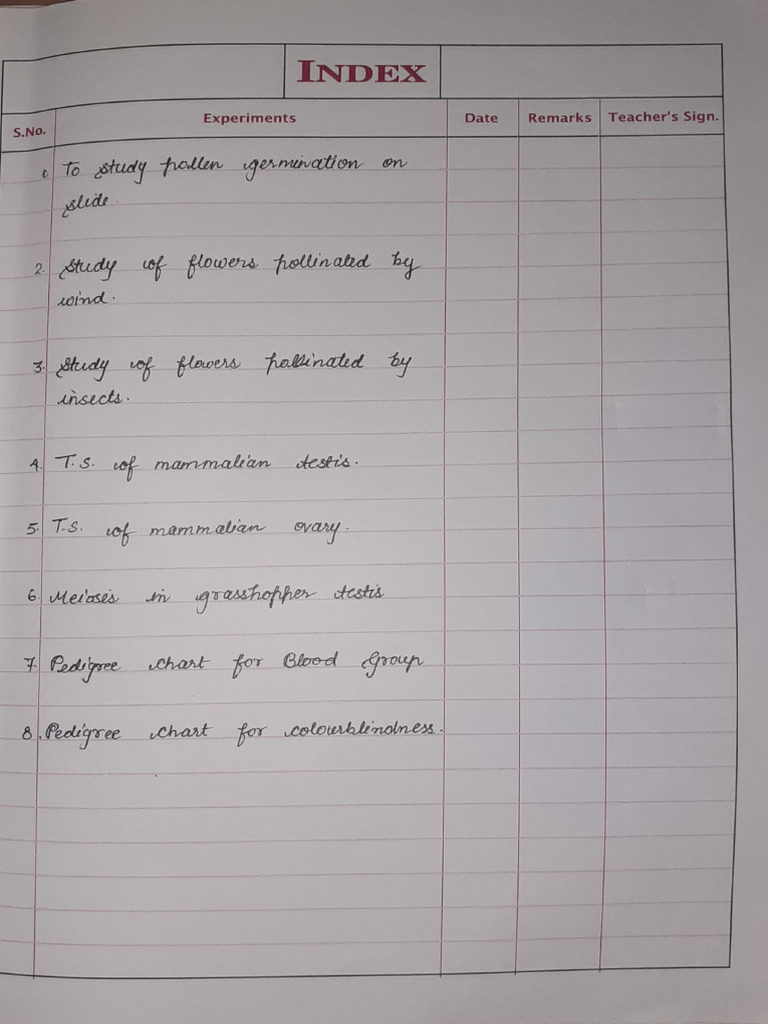 INDEX
S.No. Experiments Date Remarks Teacher's Sign.
1. To study pollen germination on
slide.
2. Study of flowers pollinated by
wind.
3. Study of flowers pollinated by
insects.
4. T.S. of mammalian testis.
5. T.S. of mammalian ovary.
6 Meiosis in grasshopper testis
7. Pedigree chart for Blood Group
8. Pedigree chart for colourblindness.